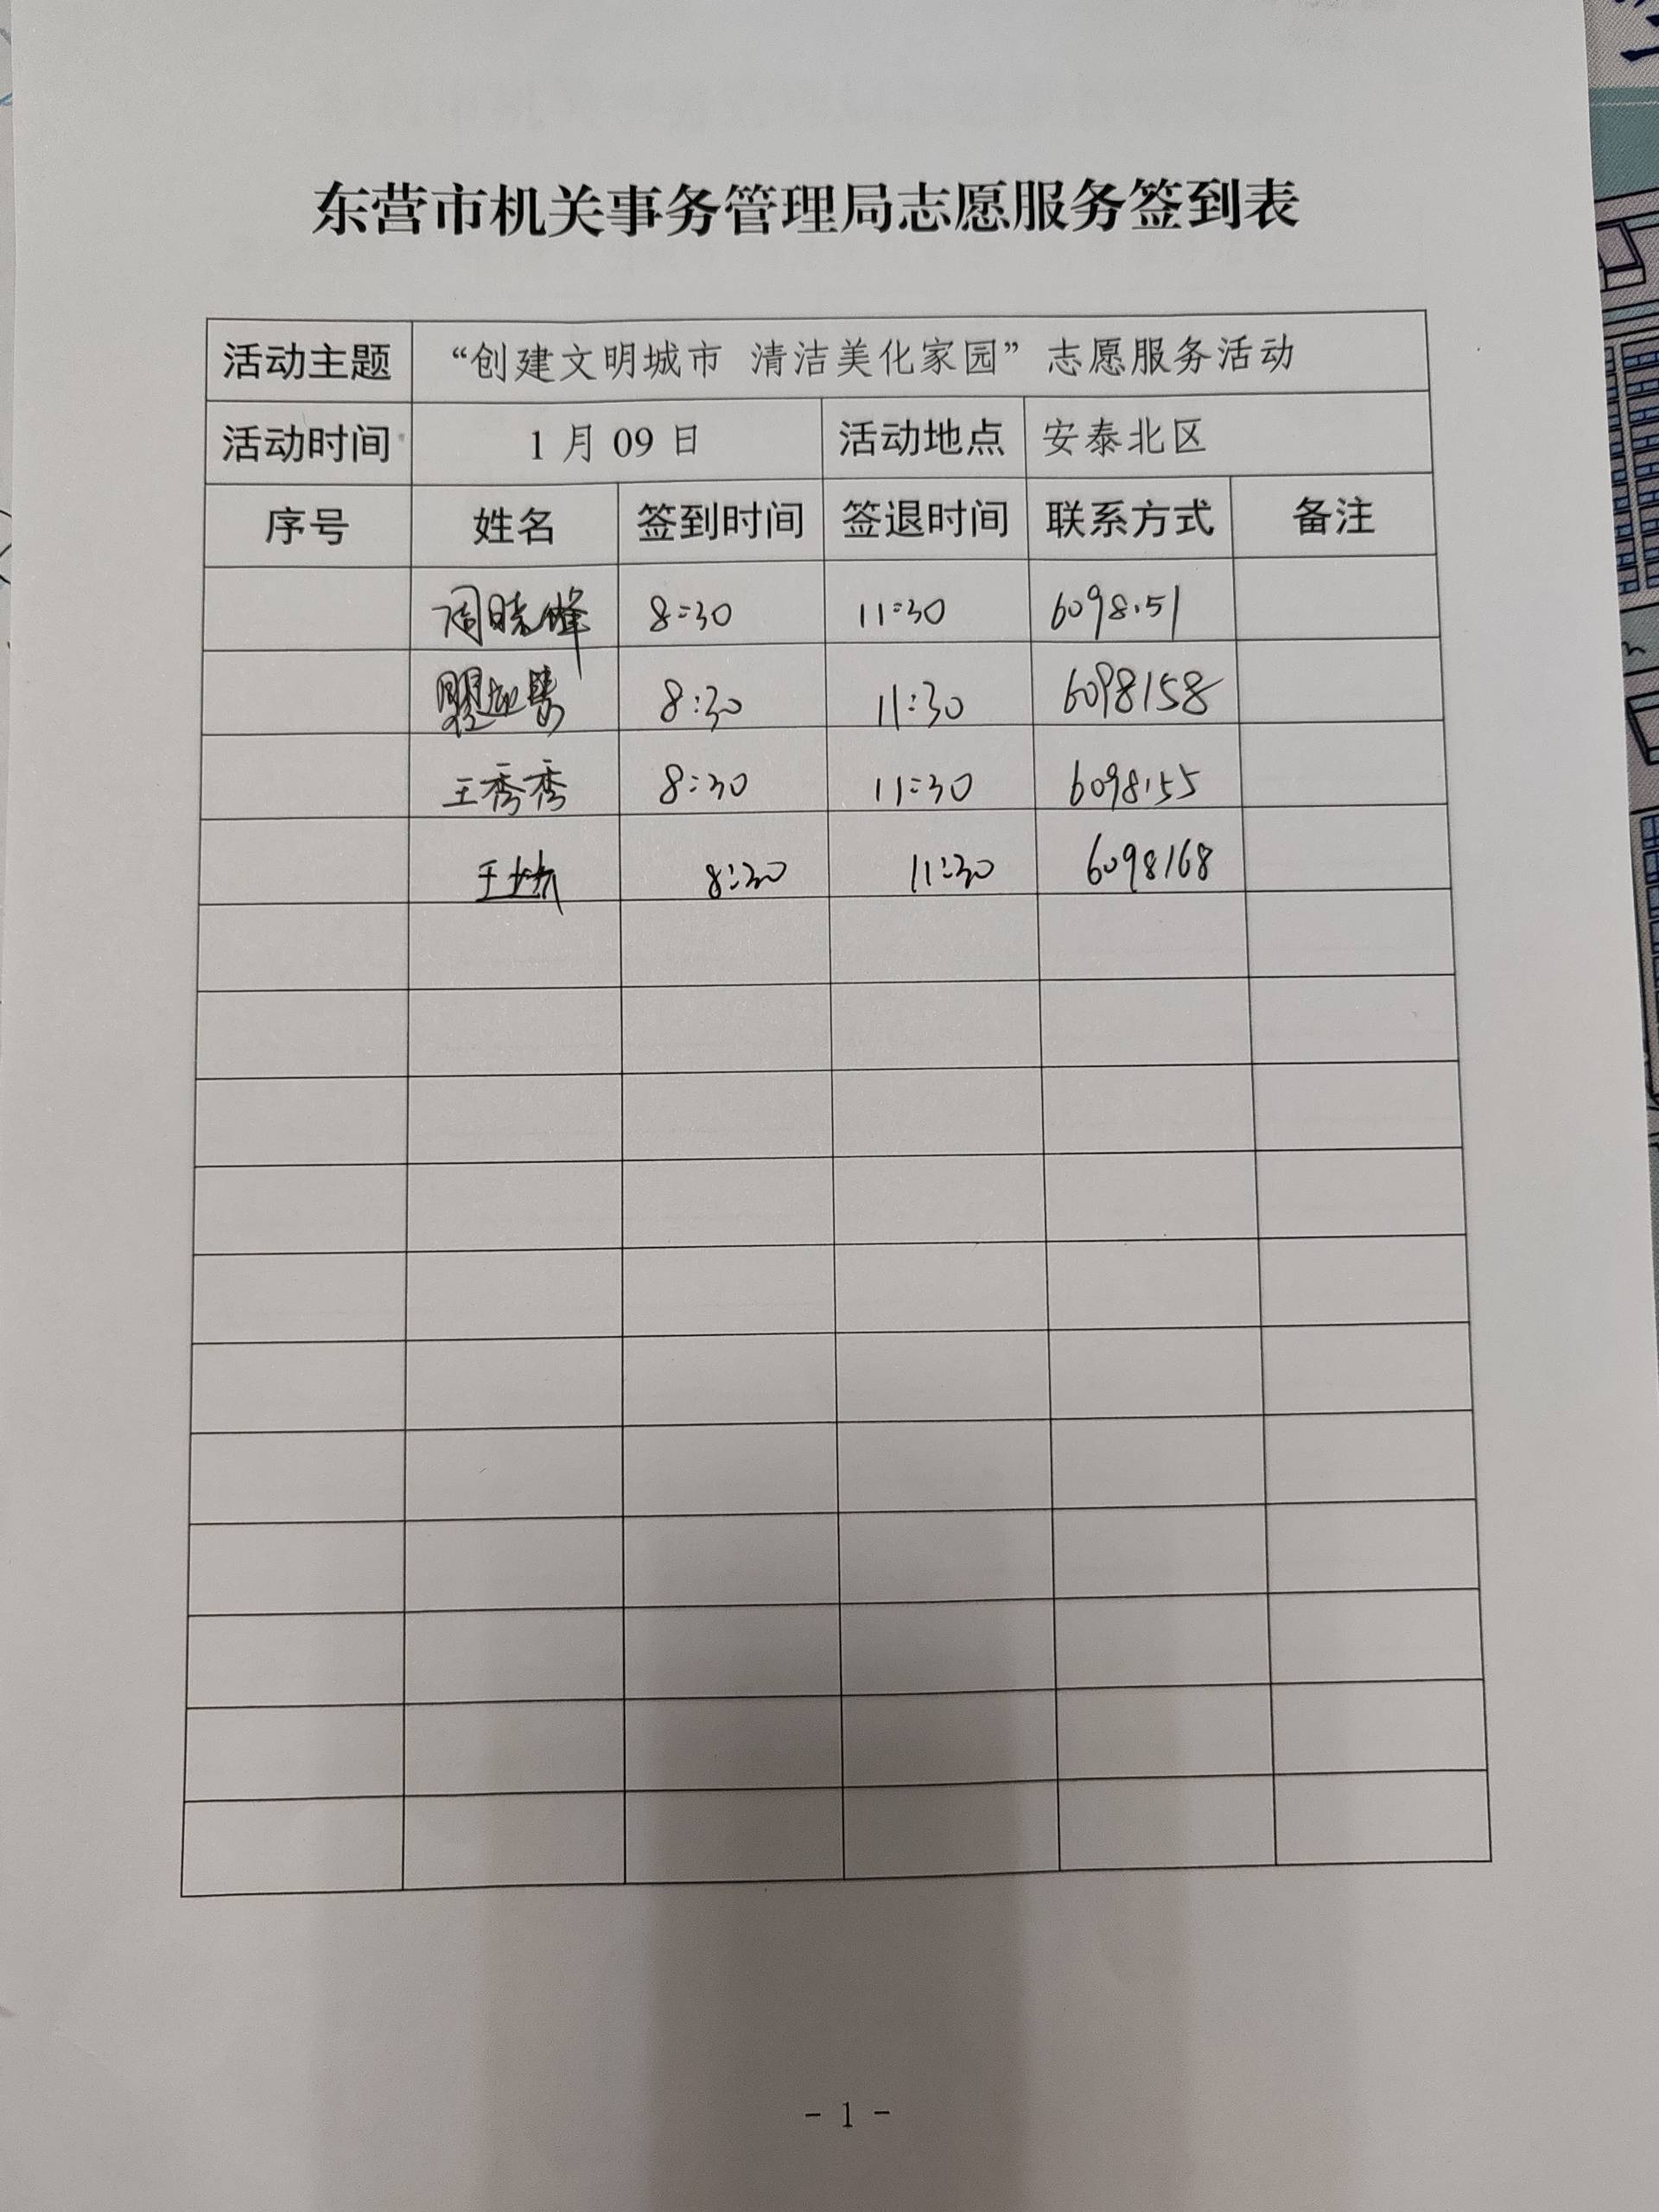 东营市机关事务管理局志愿服务签到表
活动主题 “创建文明城市 清洁美化家园”志愿服务活动
活动时间 1月09日 活动地点 安泰北区
序号 姓名 签到时间 签退时间 联系方式 备注
周晓峰 8:30 11:30 6098151
8:30 11:30 6098158
王秀秀 8:30 11:30 6098155
王 8:30 11:30 6098168
- 1 -